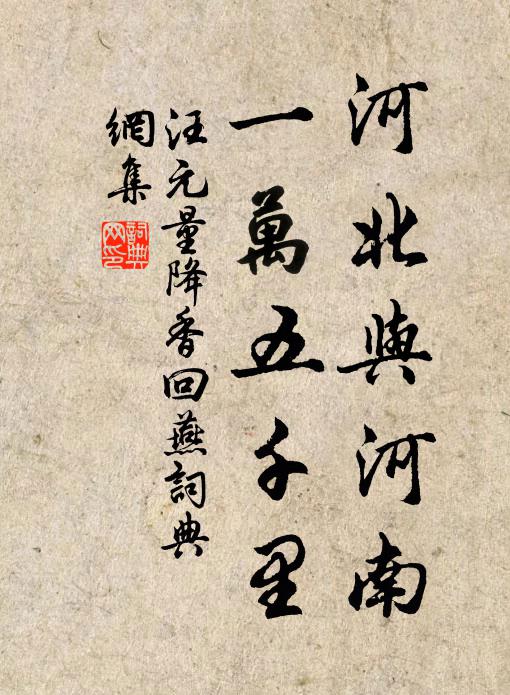 河北與河南
一萬五千里
汪元量降香回燕詞典
網集
詞典
网印